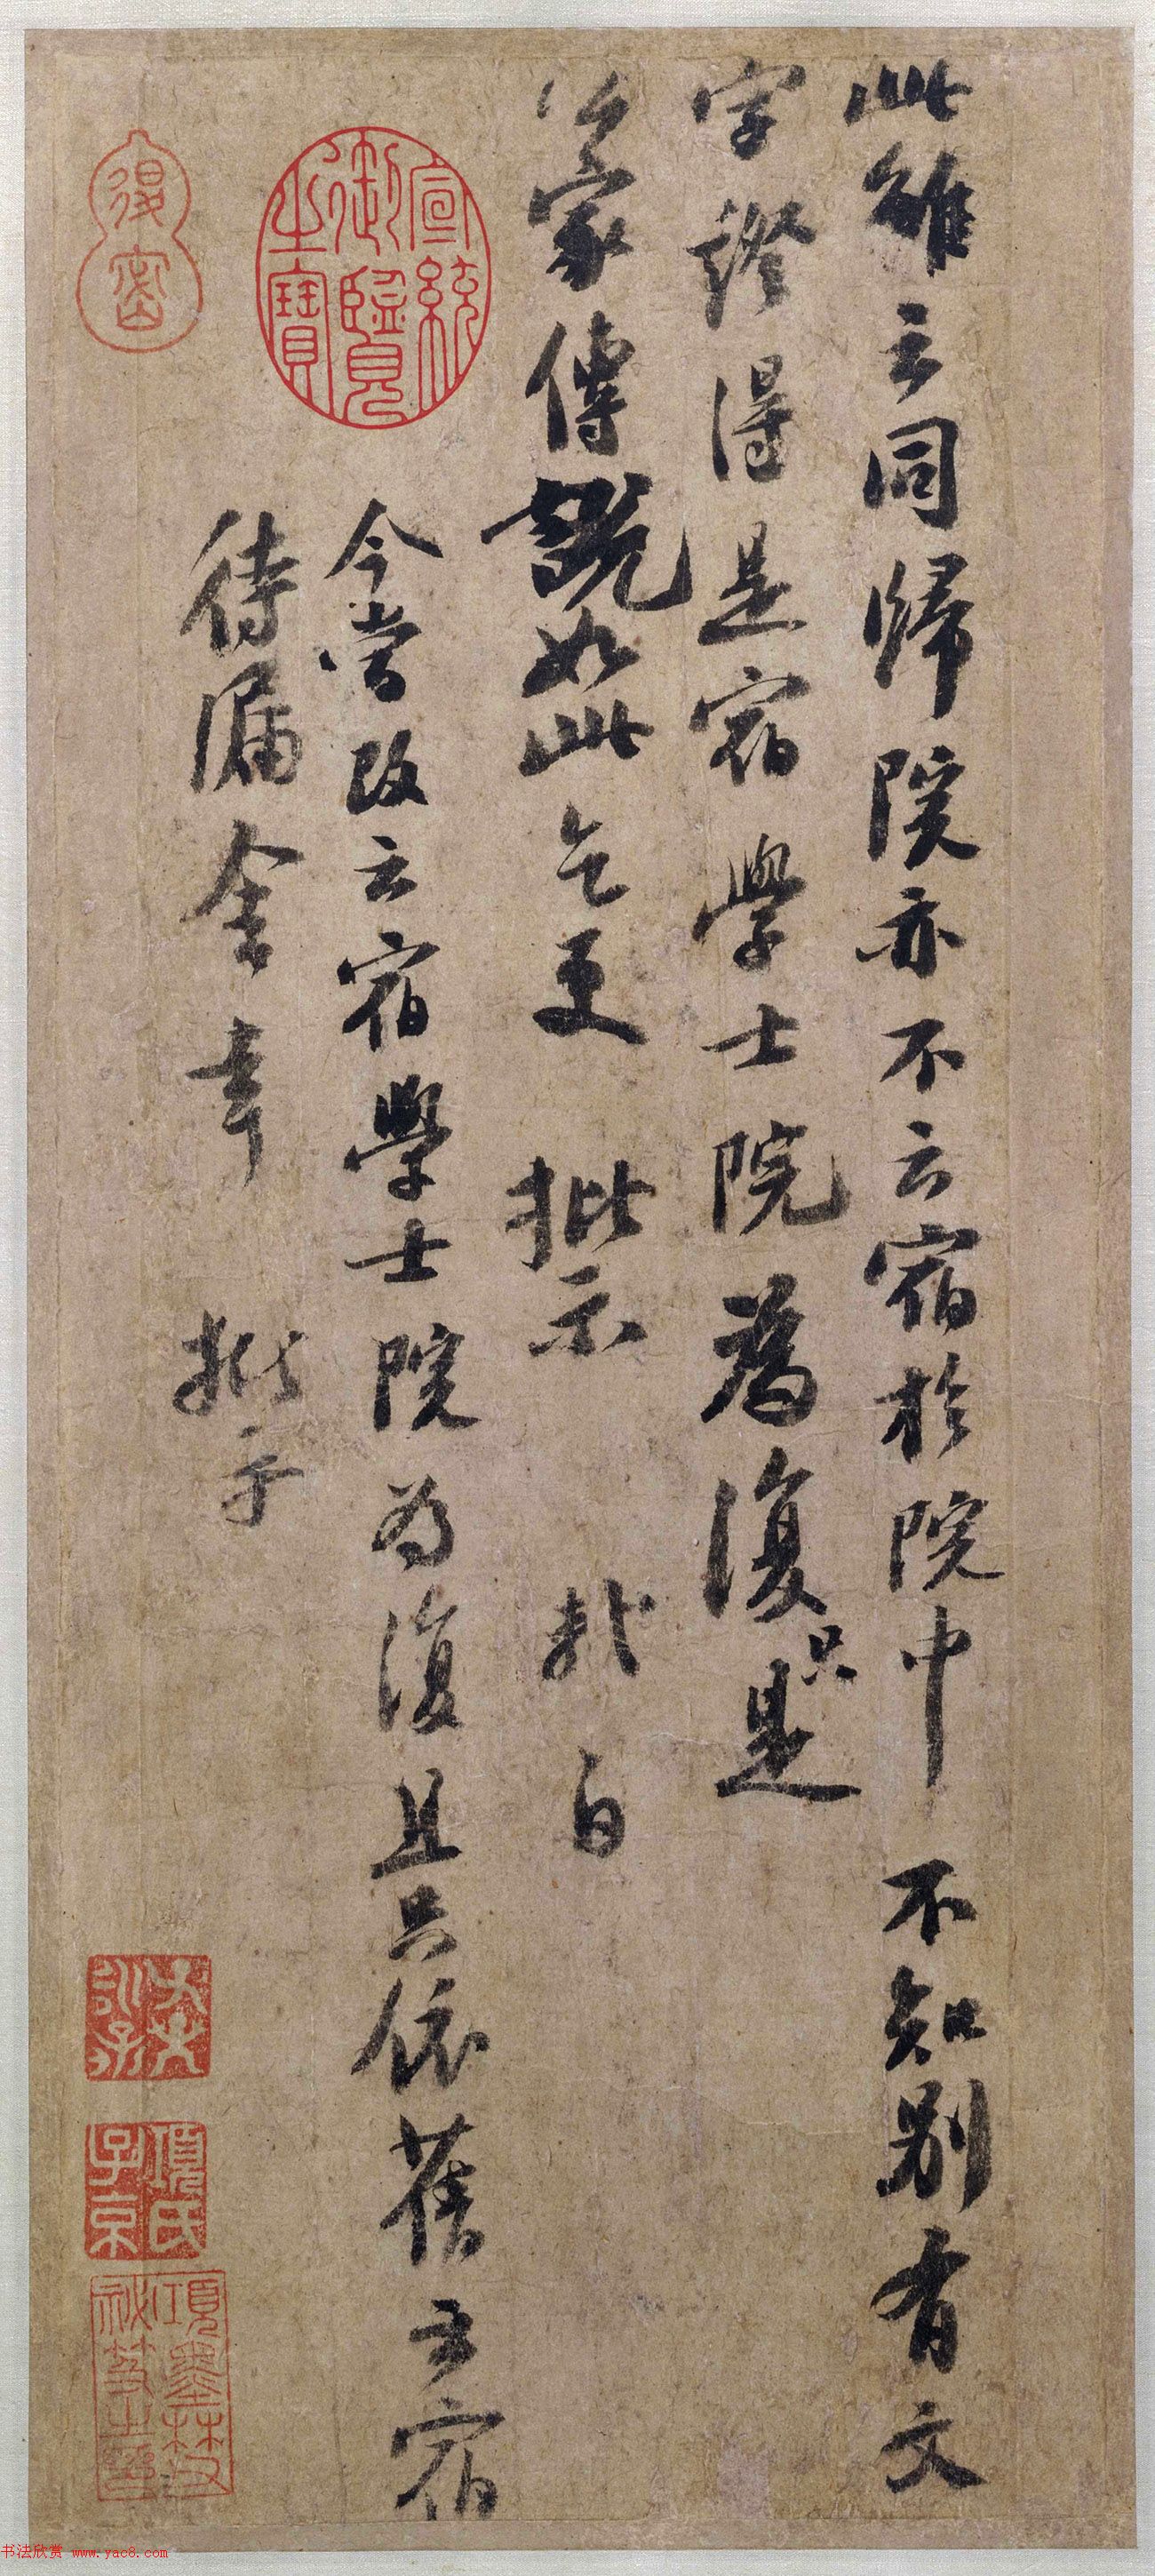 此雖云同歸院亦不云宿於院中不知別有文
字證得是宿學士院為復只是
公家傳說如此乞更批示 軾白
今當改云宿學士院為復且只依舊云宿
待漏舍幸批示
宣統御覽之寶
得密
項氏子京
項墨林父秘笈之印
书法欣赏 www.yac8.com